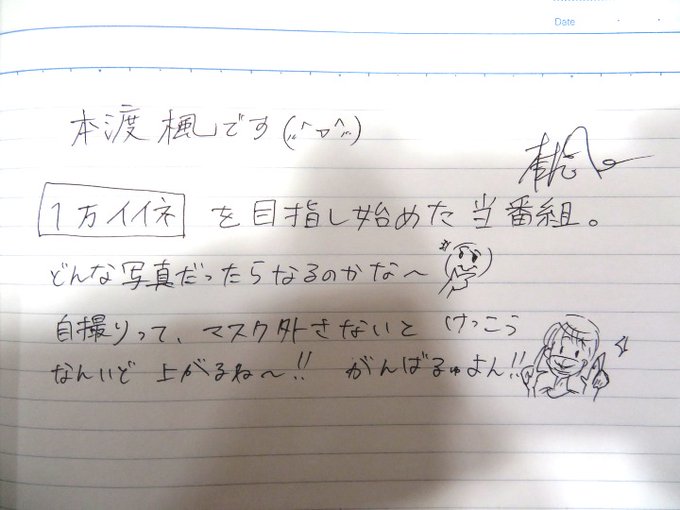 Date
本渡 楓です(〃^▽^〃)
1万イイネ を目指し始めた当番組。
どんな写真だったらなるのかな〜
自撮りって、マスク外さないと けっこう
なんいど 上がるね〜!! がんばるゅよん!!